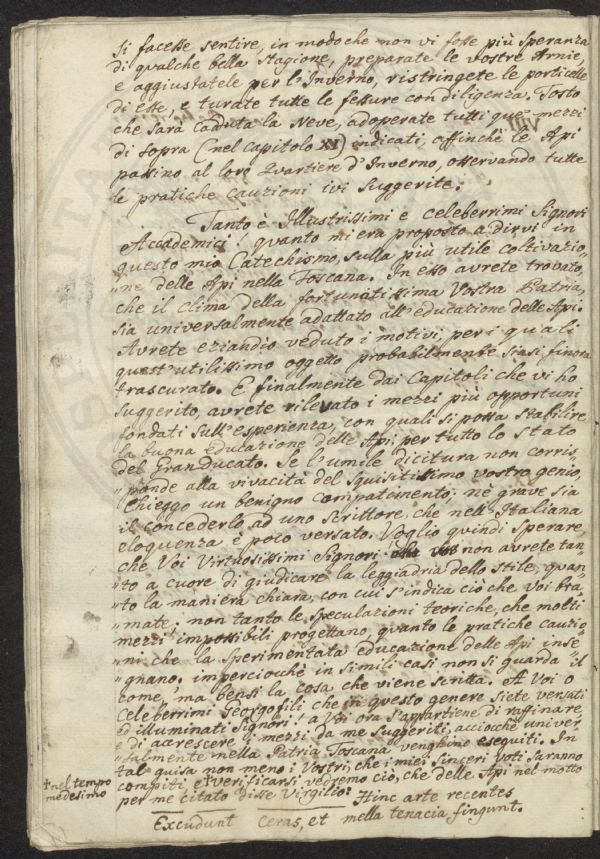 si facesse sentire, in modo che non vi fosse più speranza
di qualche bella stagione, preparate le vostre Arnie,
e aggiustatele per l'Inverno, ristringete le porticelle
di esse, e turate tutte le fessure con diligenza. Tosto
che sarà caduta la Neve, adoperate tutti que' mezzi
di sopra (nel capitolo XI) indicati, affinchè le Api
passino al loro Quartiere d'Inverno, osservando tutte
le pratiche cauzioni ivi suggerite.
Tanto è Illustrissimi e celeberrimi Signori
Accademici! quanto mi era proposto a dirvi in
questo mio Catechismo, sulla più utile coltivazio„
„ne delle Api nella Toscana. In esso avrete trovato,
che il clima della fortunatissima Vostra Patria,
sia universalmente adattato all'educazione delle Api.
Avrete eziandio veduto i motivi, per i quali
quest'utilissimo oggetto probabilmente siasi finora
trascurato. E finalmente dai Capitoli che vi ho
suggerito, avrete rilevato i mezzi più opportuni
fondati sull'esperienza, con quali si possa stabilire
la buona educazione delle Api per tutto lo stato
del GranDucato. Se l'umile dicitura non corris„
„ponde alla vivacità del squisitissimo vostro genio,
chieggo un benigno compatimento; nè grave sia
il concederlo ad uno scrittore, che nell'Italiana
eloquenza è poco versato. Voglio quindi sperare,
che Voi Virtuosissimi Signori non avrete tan„
„to a cuore di giudicare la leggiadria dello stile, quan„
„to la maniera chiara, con cui s'indica ciò che Voi bra„
„mate; non tanto le speculazioni teoriche, che molti
mezzi impossibili progettano, quanto le pratiche cauzio„
„ni che la sperimentata educazione delle Api inse„
„gnano. imperciochè in simili casi non si guarda il
come, ma bensi la cosa che viene scritta. A Voi o
celeberrimi Georgofili che in questo genere siete versati
ed illuminati Signori! a Voi ora s'appartiene di raffinare,
e di accrescere i mezzi da me suggeriti, acciochè univer„
„salmente nella Patria Toscana venghino eseguiti. In
tal guisa non meno i Vostri, che i miei sinceri voti saranno
+ nel tempo
medesimo
compiti, e verificarsi vedremo ciò, che delle Api nel motto
per me citato disse Virgilio: Hinc arte recentes
Excudunt ceras, et mella tenacia fingunt.